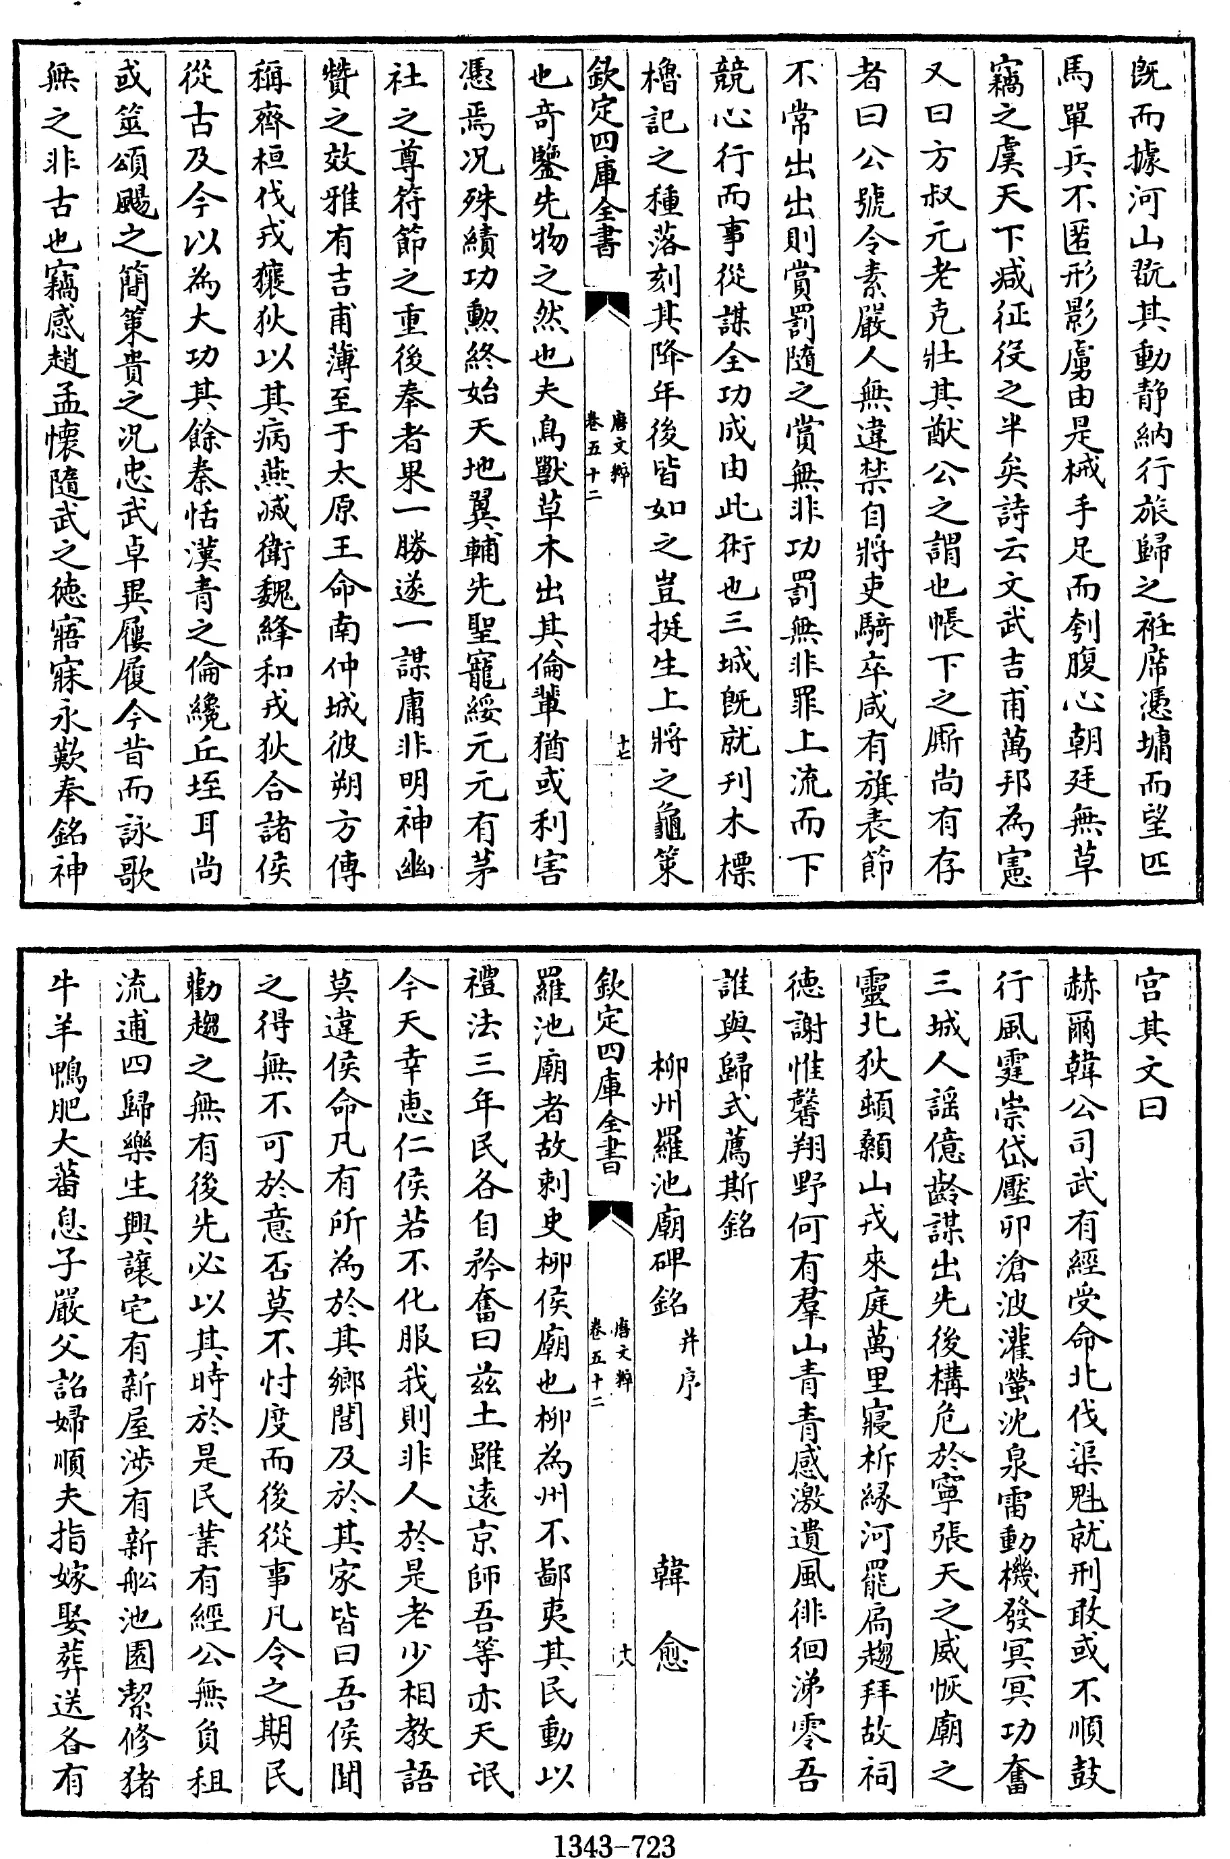 既而據河山翫其動静納行旅歸之袵席憑墉而望匹
馬單兵不匿形影虜由是械手足而刳腹心朝廷無草
竊之虞天下减征役之半矣詩云文武吉甫萬邦為憲
又曰方叔元老克壯其猷公之謂也帳下之厮尚有存
者曰公號令素嚴人無違禁自將吏騎卒咸有旗表節
不常出出則賞罰隨之賞無非功罰無非罪上流而下
競心行而事從謀全功成由此術也三城既就刋木標
櫓記之種落刻其降年後皆如之豈挺生上將之龜策
欽定四庫全書
唐文粹
卷五十二
十七
也竒鑒先物之然也夫鳥獸草木出其倫輩猶或利害
憑焉况殊績功勲終始天地翼輔先聖寵綏元元有茅
社之尊符節之重後奉者果一勝遂一謀庸非明神幽
贊之效雅有吉甫薄至于太原王命南仲城彼朔方傳
稱齊桓伐戎攘狄以其病燕滅衛魏絳和戎狄合諸侯
從古及今以為大功其餘秦恬漢青之倫纔丘垤耳尚
或筮頌颺之簡策貴之况忠武卓異屨履今昔而詠歌
無之非古也竊感趙孟懷隨武之徳寤寐永歎奉銘神
宫其文曰
赫爾韓公司武有經受命北伐渠魁就刑敢或不順鼓
行風霆崇岱壓卵滄波灌螢沈泉雷動機發冥冥功奮
三城人謡億齡謀出先後構危於寧張天之威恢廟之
靈北狄頓顙山戎來庭萬里寢柝縁河罷扄趨拜故祠
徳謝惟馨翔野何有羣山青青感激遺風徘徊涕零吾
誰與歸式薦斯銘
柳州羅池廟碑銘并序
韓愈
欽定四庫全書
唐文粹
卷五十二
十八
羅池廟者故刺史柳侯廟也柳為州不鄙夷其民動以
禮法三年民各自矜奮曰兹土雖逺京師吾等亦天氓
今天幸惠仁侯若不化服我則非人於是老少相教語
莫違侯命凡有所為於其鄉閭及於其家皆曰吾侯聞
之得無不可於意否莫不忖度而後從事凡令之期民
勸趨之無有後先必以其時於是民業有經公無負租
流逋四歸樂生興讓宅有新屋渉有新舩池園潔修猪
牛羊鴨肥大蕃息子嚴父詔婦順夫指嫁娶葬送各有
1343-723